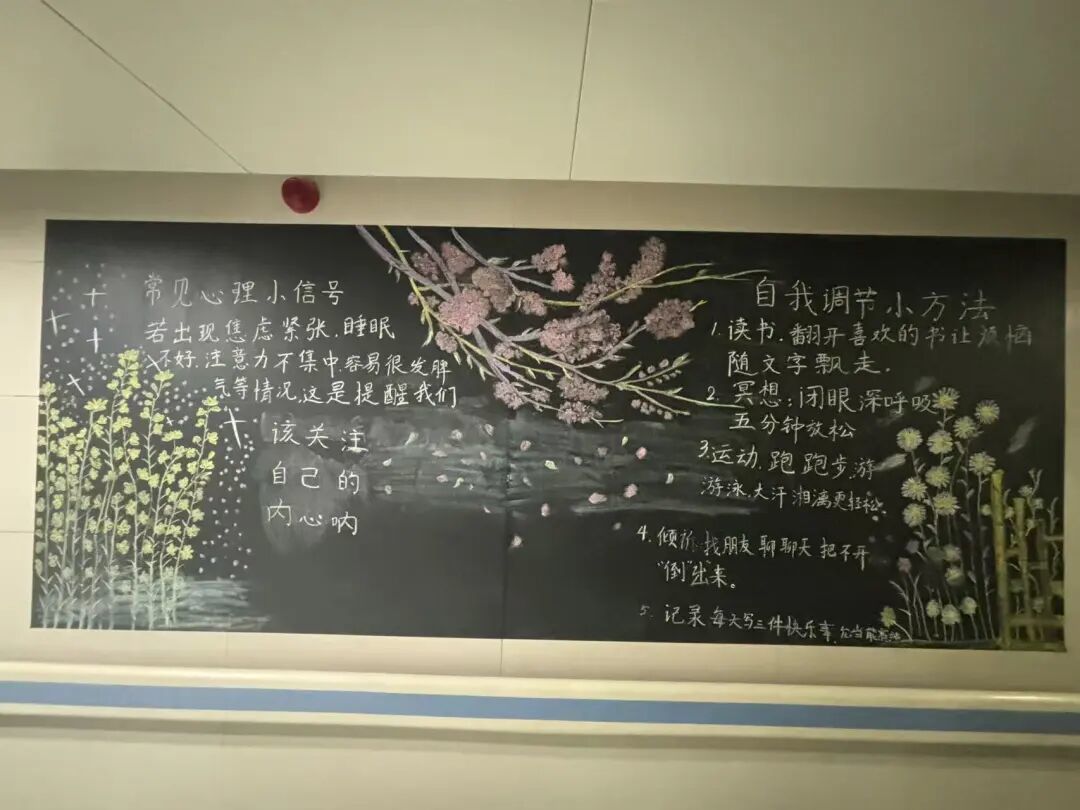 常见心理小信号
若出现焦虑紧张，睡眠
不好，注意力不集中，容易很发脾
气等情况，这是提醒我们
该关注
自己的
内心呐
自我调节小方法
1. 读书，翻开喜欢的书让烦恼
随文字飘走，
2. 冥想：闭眼深呼吸
五分钟放松
3. 运动，跑跑步，游
游泳，大汗湘漓更轻松。
4. 倾诉，找朋友聊聊天把不开
“倒”出来。
5. 记录 每天写三件快乐事，